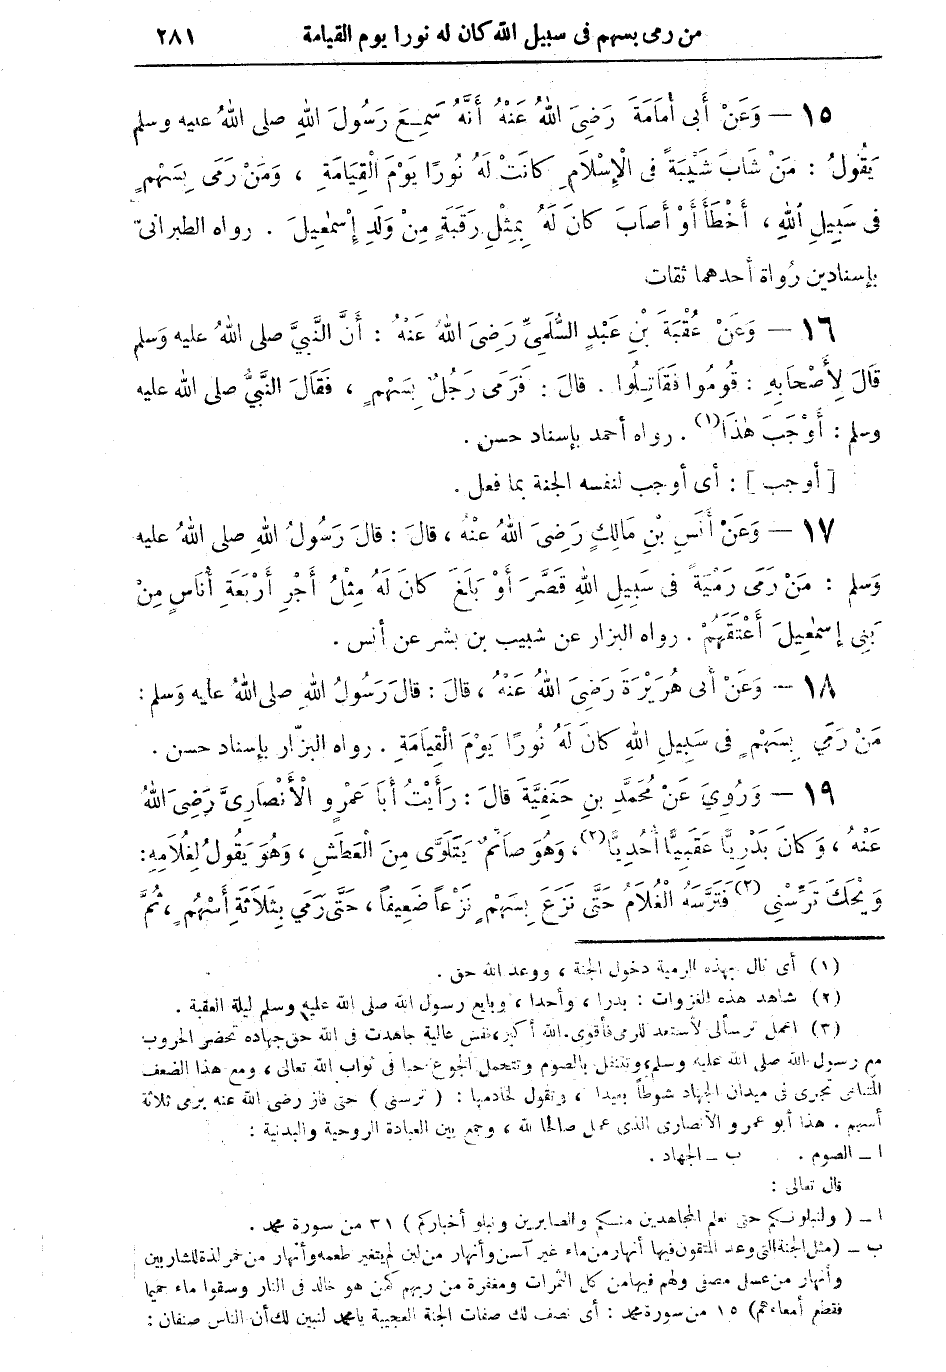 من رمى بسهم فى سبيل الله كان له نورا يوم القيامة ٢٨١
١٥ — وَعَنْ أَبِى أُمَامَةَ رَضِىَ اللهُ عَنْهُ أَنَّهُ سَمِعَ رَسُولَ اللهِ صلى اللهُ عليه وسلم
يَقُولُ : مَنْ شَابَ شَيْبَةً فى الْإِسْلَامِ كَانَتْ لَهُ نُورًا يَوْمَ الْقِيَامَةِ ، وَمَنْ رَمَى بِسَهْمٍ
فى سَبِيلِ اللهِ ، أَخْطَأَ أَوْ أَصَابَ كَانَ لَهُ بِمِثْلِ رَقَبَةٍ مِنْ وَلَدِ إِسْمٰعِيلَ . رواه الطبرانىّ
بإسنادين رُواة أحدهما ثقات
١٦ — وَعَنْ عُقْبَةَ بْنِ عَبْدٍ السُّلَمِىِّ رَضِىَ اللهُ عَنْهُ : أَنَّ النَّبِيَّ صلى اللهُ عليه وَسلم
قَالَ لِأَصْحَابِهِ : قُومُوا فَقَاتِلُوا . قالَ : فَرَمَى رَجُلٌ بِسَهْمٍ ، فَقَالَ النَّبِيُّ صلى الله عليه
وسلم : أَوْجَبَ هٰذَا (١) . رواه أحمد بإسناد حسن .
[ أوجب ] : أى أوجب لنفسه الجنة بما فعل .
١٧ — وَعَنْ أَنَسِ بْنِ مَالِكٍ رَضِىَ اللهُ عنْهُ ، قالَ : قالَ رَسُولُ اللهِ صلى اللهُ عليه
وَسلم : مَنْ رَمَى رَمْيَةً فى سَبِيلِ اللهِ قَصَّرَ أَوْ بَلَغَ كَانَ لَهُ مِثْلُ أَجْرِ أَرْبَعَةِ أُنَاسٍ مِنْ
بَنِى إِسْمٰعِيلَ أَعْتَقَهُمْ . رواه البزار عن شبيب بن بشر عن أنس .
١٨ — وَعَنْ أَبى هُرَيْرَةَ رَضِىَ اللهُ عَنْهُ ، قالَ : قالَ رَسُولُ اللهِ صلى اللهُ عليه وَسلم :
مَنْ رَمَي بِسَهْمٍ فى سَبِيلِ اللهِ كَانَ لَهُ نُورًا يَوْمَ الْقِيَامَةِ . رواه البزّار بإسناد حسن .
١٩ — وَرُوِيَ عَنْ مُحَمَّدِ بنِ حَنَفِيَّةَ قالَ : رَأَيْتُ أَبَا عَمْرٍو الْأَنْصَارِىَّ رَضِىَ اللهُ
عَنْهُ ، وَكَانَ بَدْرِيًّا عَقَبِيًّا أُحُدِيًّا (٢) ، وَهُوَ صَائمٌ يَتَلَوَّى مِنَ الْعَطَشِ ، وَهُوَ يَقُولُ لِغُلَامِهِ :
وَيْحَكَ تَرِّسْنِى (٣) فَتَرَّسَهُ الْغُلَامُ حَتَّى نَزَعَ بِسَهْمٍ نَزْعاً ضَعِيفاً ، حَتَّى رَمَي بِثَلَاثَةِ أَسْهُمٍ ، ثُمَّ
(١) أى نال بهذه الرمية دخول الجنة ، ووعد الله حق .
(٢) شاهد هذه الغزوات : بدرا ، وأحدا ، وبايع رسول الله صلى الله عليه وسلم ليلة العقبة .
(٣) اعمل ترساً لى لأستعد للرمى فأقوى. الله أكبر، نفس عالية جاهدت فى الله حق جهاده تحضر الحروب
مع رسول الله صلى الله عليه وسلم، وتتنفل بالصوم وتتحمل الجوع حبا فى ثواب الله تعالى ، ومع هذا الضعف
المتناهى تجرى فى ميدان الجهاد شوطاً بعيدا ، وتقول لخادمها : ( ترسنى ) حتى فاز رضى الله عنه برمى ثلاثة
أسهم . هذا أبو عمرو الأنصارى الذى عمل صالحا لله ، وجمع بين العبادة الروحية والبدنية :
ا — الصوم . ب — الجهاد .
قال تعالى :
ا — ( ولنبلونكم حتى نعلم المجاهدين منكم والصابرين ونبلو أخباركم ) ٣١ من سورة محمد .
ب — (مثل الجنة التى وعد المتقون فيها أنهار من ماء غير آسن وأنهار من لبن لم يتغير طعمه وأنهار من خمر لذة للشاربين
وأنهار من عسل مصفى ولهم فيها من كل الثمرات ومغفرة من ربهم كمن هو خالد فى النار وسقوا ماء حميما
فقطع أمعاءهم) ١٥ من سورة محمد : أى نصف لك صفات الجنة العجيبة يا محمد لنبين لك أن الناس صنفان :